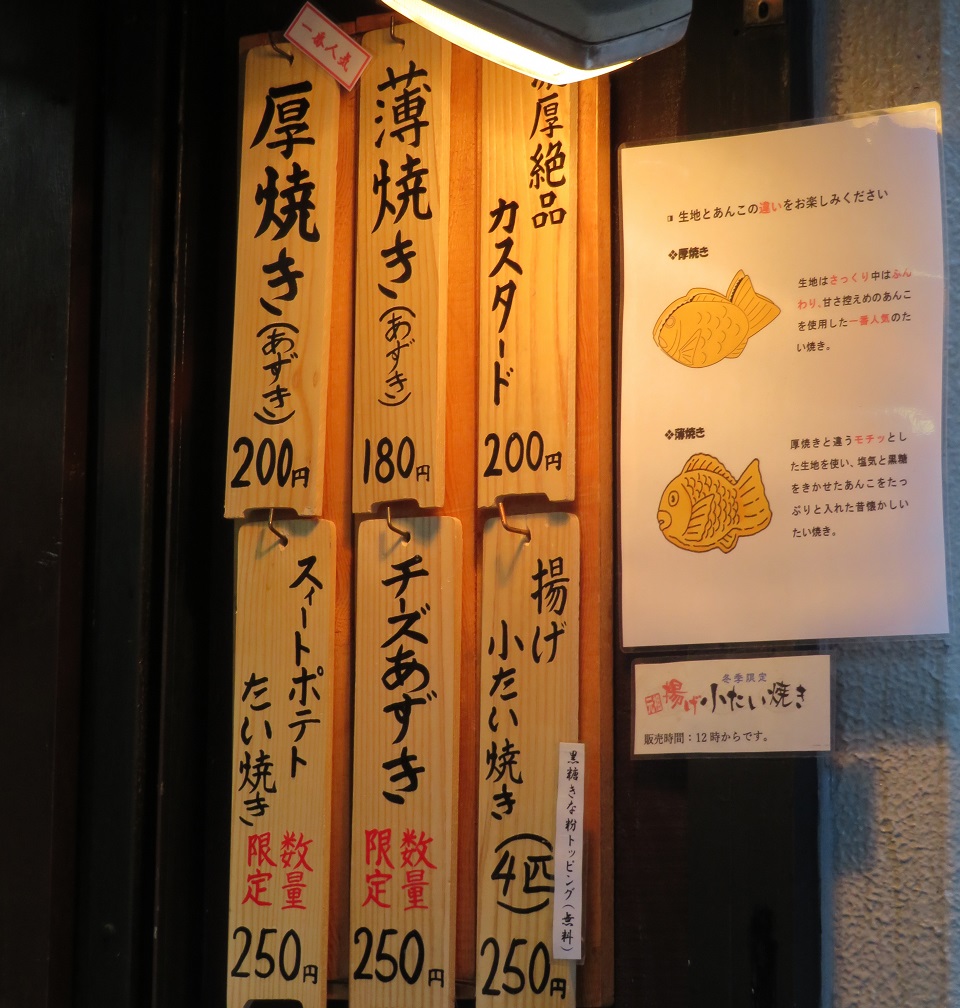 一番人気
厚焼き(あずき)
200円
薄焼き(あずき)
180円
厚絶品
カスタード
200円
スィートポテト
たい焼き
数量
限定
250円
チーズあずき
数量
限定
250円
揚げ
小たい焼き
(4匹)
250円
黒糖きな粉トッピング(無料)
生地とあんこの違いをお楽しみください
❖厚焼き
生地はさっくり中はふん
わり、甘さ控えめのあんこ
を使用した一番人気のた
い焼き。
❖薄焼き
厚焼きと違うモチッとし
た生地を使い、塩気と黒糖
をきかせたあんこをたっ
ぷりと入れた昔懐かしい
たい焼き。
冬季限定
揚げ小たい焼き
販売時間:12時からです。